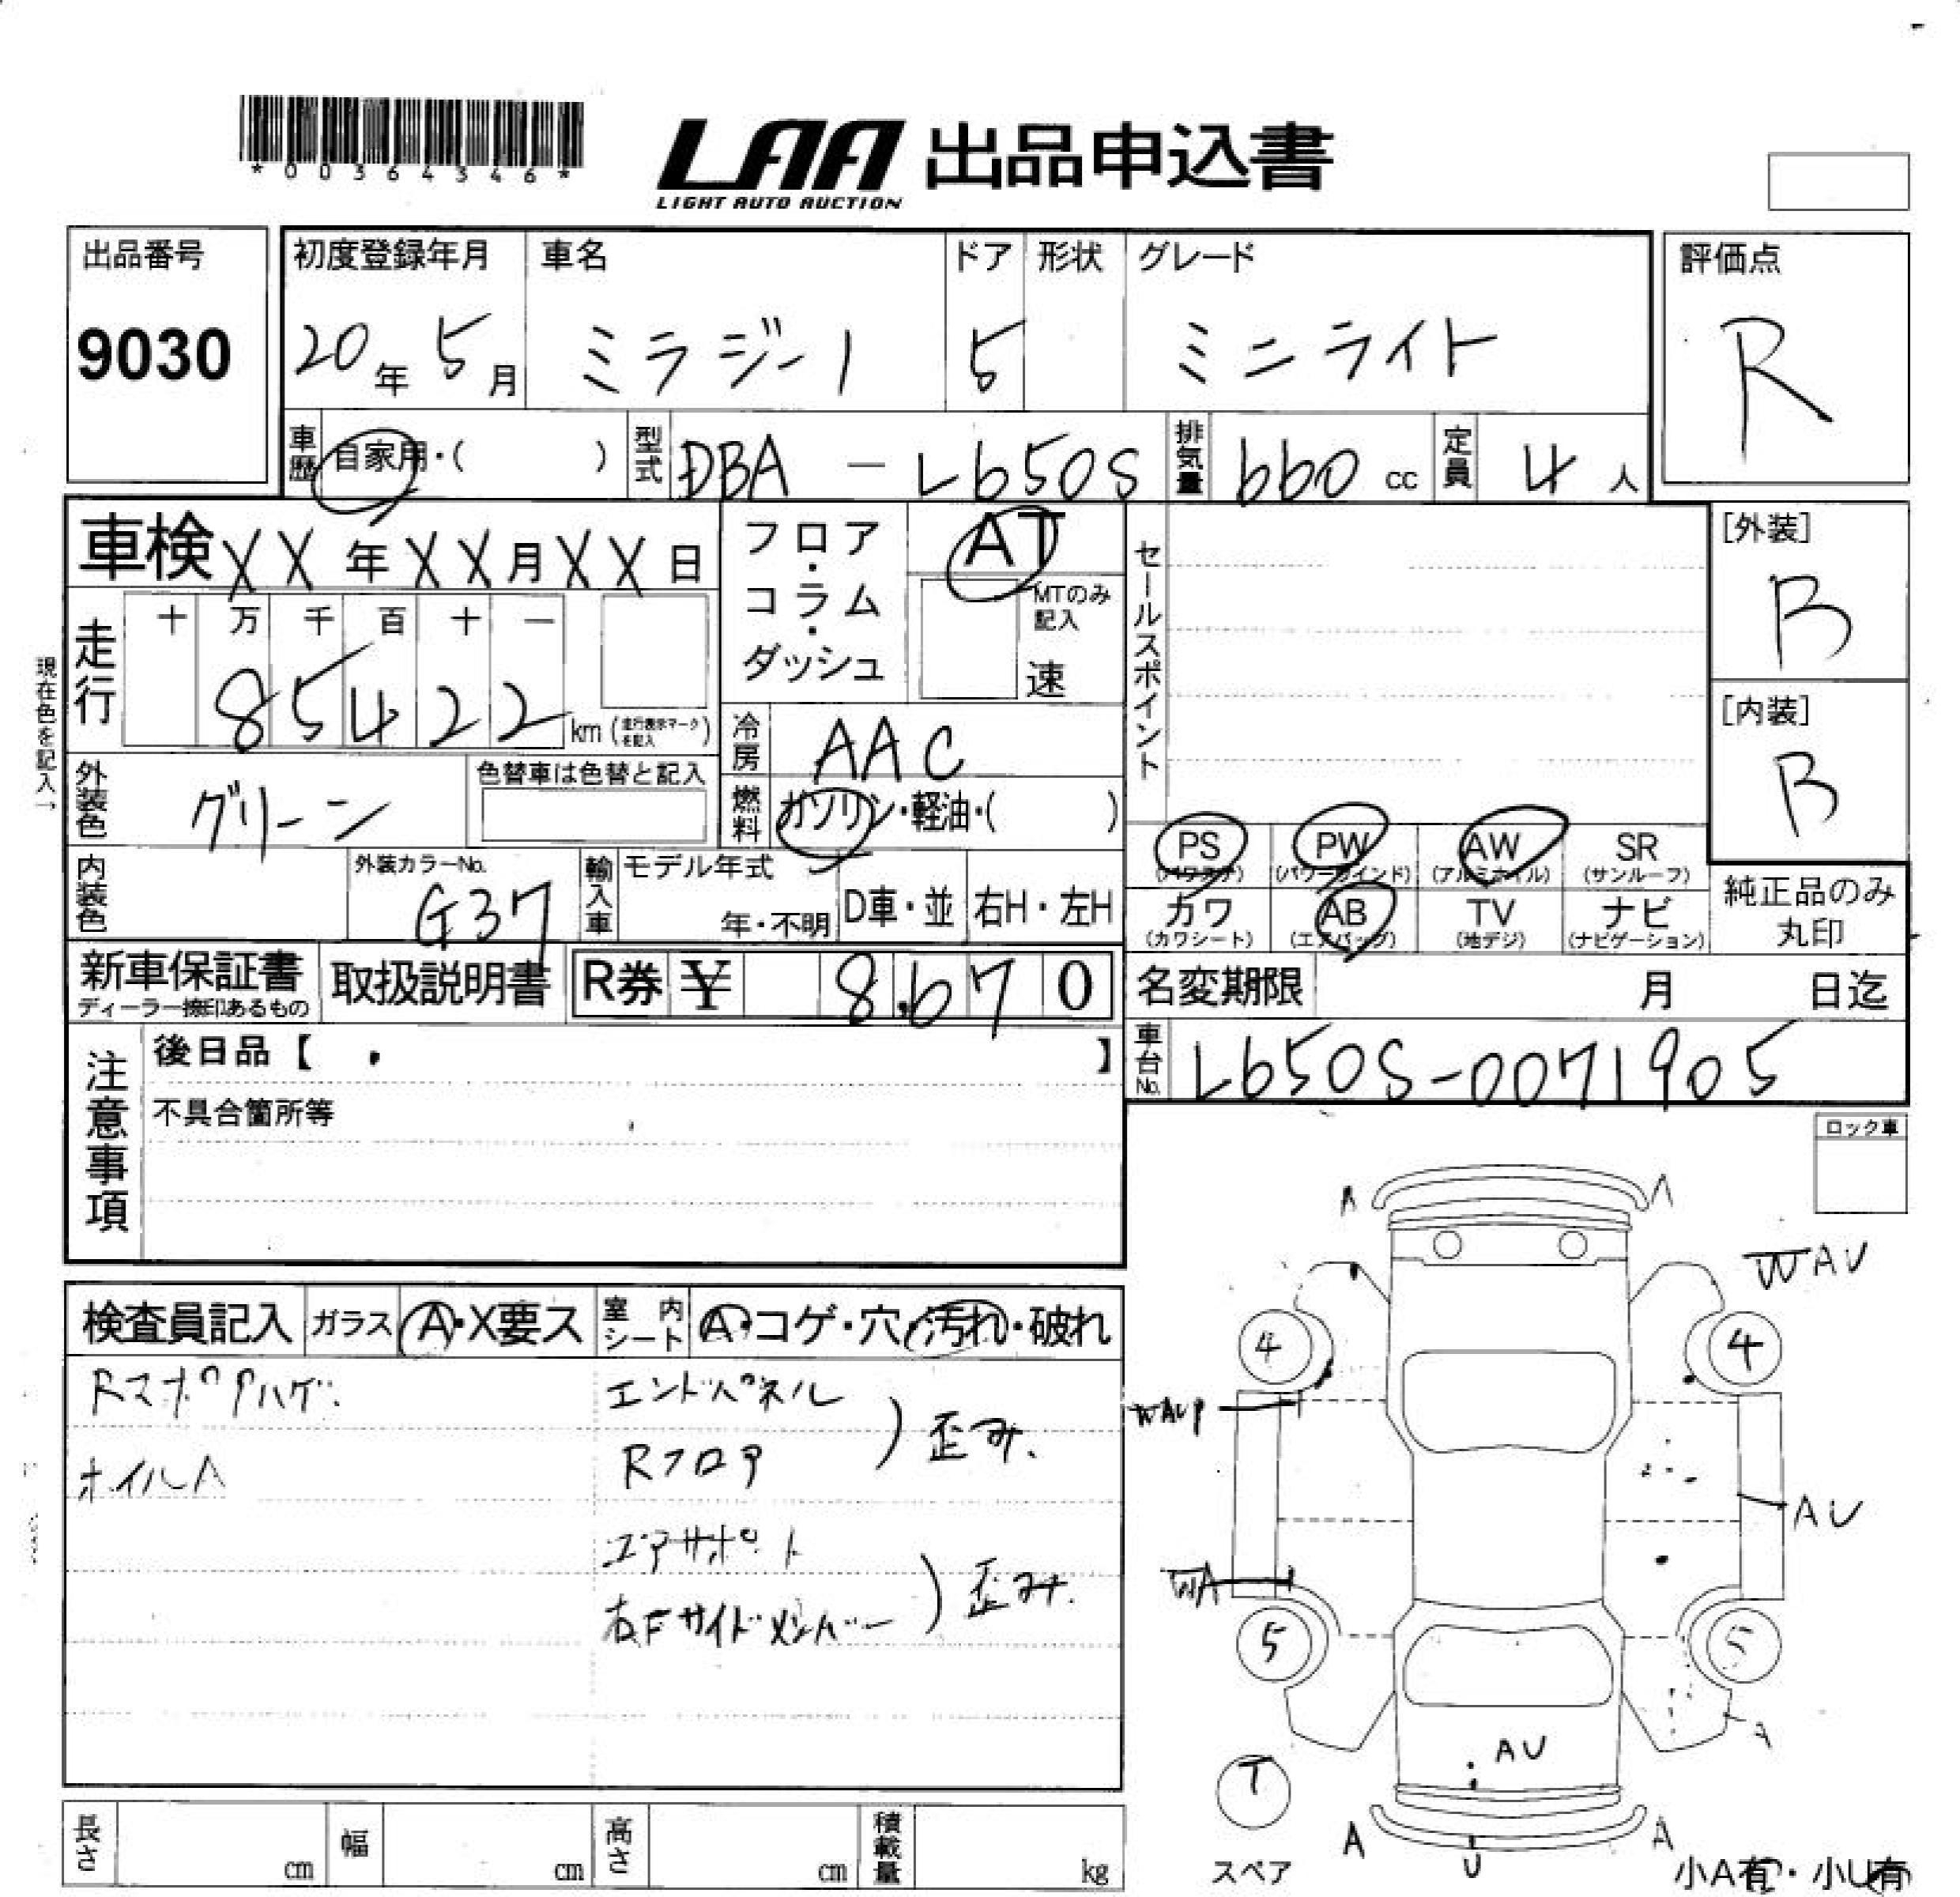 *00364346*
LAA 出品申込書
LIGHT AUTO AUCTION
出品番号
9030
初度登録年月
20年 5月
車名
ミラジーノ
ドア
5
形状
グレード
ミニライト
評価点
R
車歴 自家用・( )
型式 DBA - L650S
排気量 660 cc
定員 4 人
車検 XX年XX月XX日
フロア・コラム・ダッシュ
AT
MTのみ記入
速
セールスポイント
[外装]
B
[内装]
B
現在色を記入→
走行
十 万 千 百 十 一
85422 km (走行表示マークを記入)
冷房 AAC
外装色 グリーン
色替車は色替と記入
燃料 ガソリン・軽油・( )
内装色
外装カラーNo.
G37
輸入車
モデル年式
年・不明
D車・並
右H・左H
PS (パワステ)
PW (パワーウインド)
AW (アルミホイル)
SR (サンルーフ)
カワ (カワシート)
AB (エアバッグ)
TV (地デジ)
ナビ (ナビゲーション)
純正品のみ丸印
新車保証書
ディーラー捺印あるもの
取扱説明書
R券 ¥ 8,670
名変期限 月 日迄
車台No. L650S-0071905
注意事項
後日品【 】
不具合箇所等
ロック車
検査員記入
ガラス A・X要ス
室内シート A・コゲ・穴・汚れ・破れ
ホイルA
エンドパネル
Rフロア
歪み.
エアサポート
右Fサイドメンバー
歪み.
A A
WAU
4 4
AU
WA
5 5
A
AU
T
スペア
A U A
小A有・小U有
長さ cm
幅 cm
高さ cm
積載量 kg